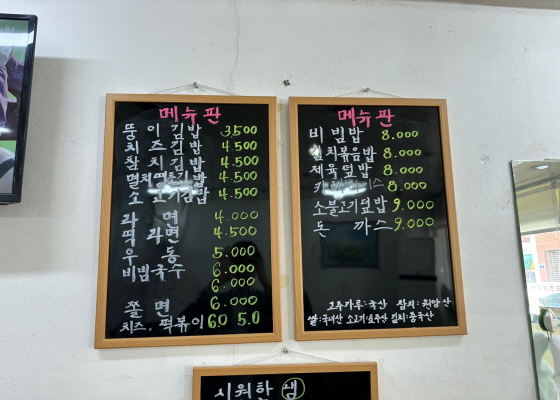 메뉴판
뚱이김밥 3,500
치즈김밥 4.500
참치김밥 4.500
멸치땡초김밥 4.500
소고기김밥 4.500
라면 4.000
떡라면 4.500
우동 5.000
비빔국수 6.000
6.000
쫄면 6.000
치즈, 떡볶이 6.0 5.0
메뉴판
비빔밥 8.000
김치볶음밥 8.000
제육덮밥 8.000
8.000
소불고기덮밥 9.000
돈까스 9.000
고추가루:국산 참치:원양산
쌀:국내산 소고기:호주산 김치:중국산
시원한